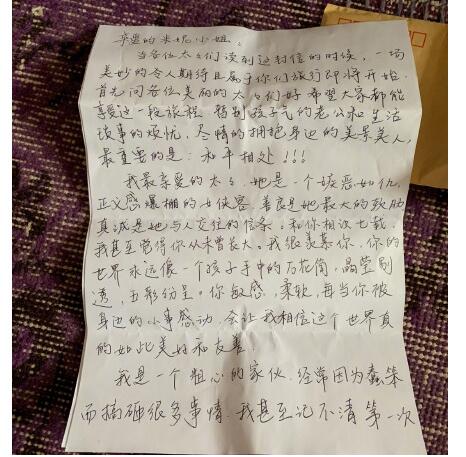 亲爱的米妮小姐：
当各位太太们读到这封信的时候，一场
美妙的令人期待且属于你们旅行即将开始
首先问各位美丽的太太们好 希望大家都能
享受这一段旅程 暂别孩子气的老公和生活
琐事的烦忧，尽情的拥抱身边的美景美人，
最重要的是：和平相处！！！
我最亲爱的太太 她是一个嫉恶如仇
正义感爆棚的女侠客 善良是她最大的软肋
真诚是她与人交往的信条。和你相识七载，
我甚至觉得你从未曾长大。我很羡慕你，你的
世界永远像一个孩子手中的万花筒，晶莹剔
透，五彩纷呈。你敏感，柔软，每当你被
身边的小事感动，会让我相信这个世界真
的如此美好和友善！
我是一个粗心的家伙，经常因为蠢笨
而搞砸很多事情，我甚至记不清第一次